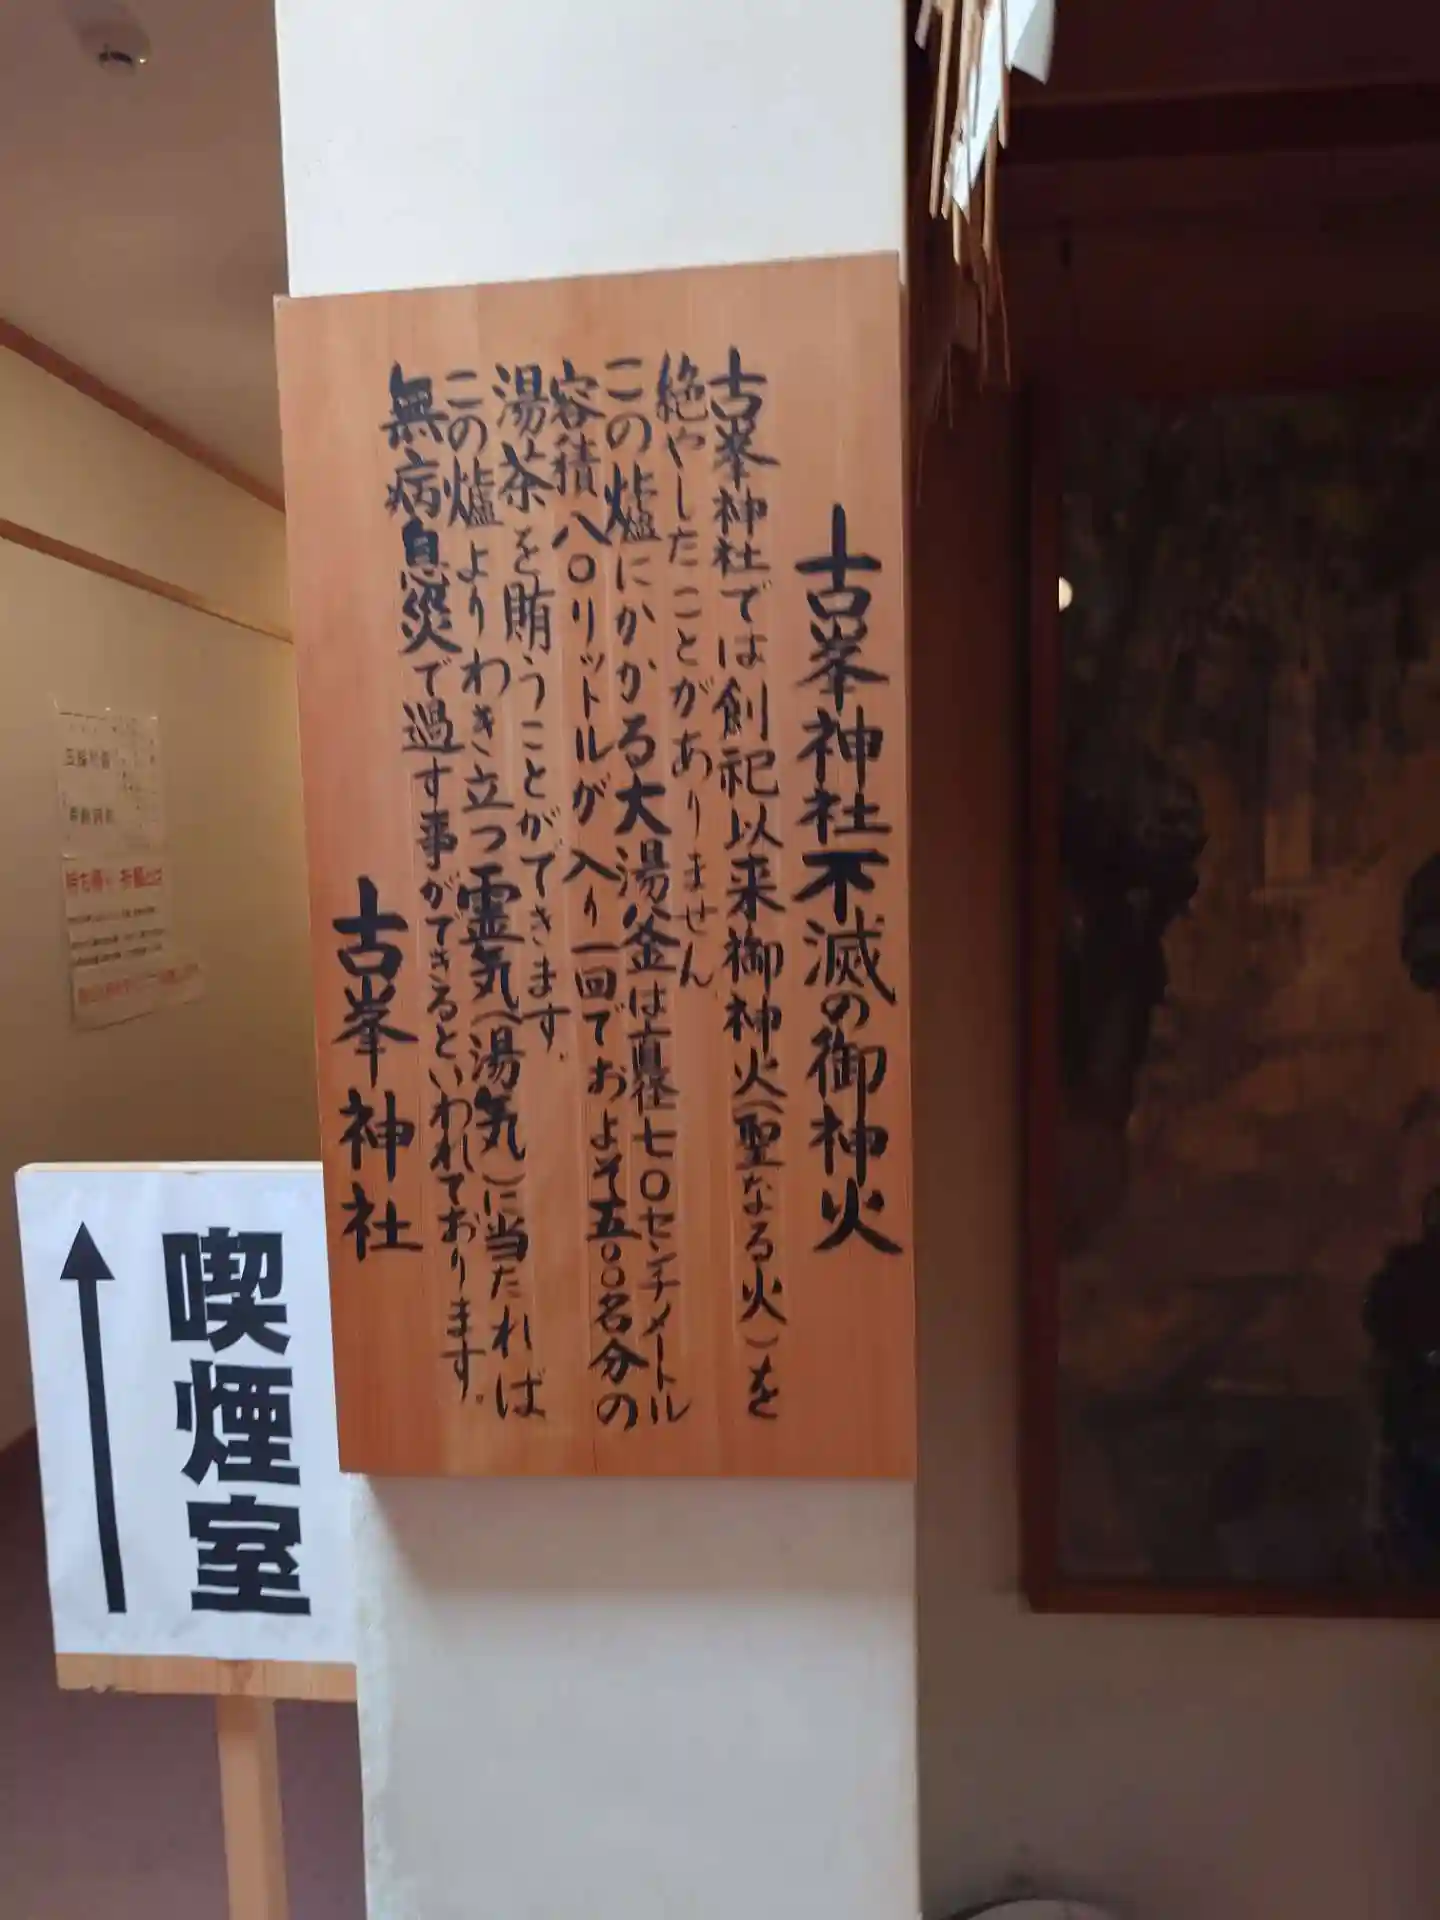 古峯神社不滅の御神火
古峯神社では創祀以来御神火(聖なる火)を
絶やしたことがありません
この爐にかかる大湯釜は直径七〇センチメートル
容積八〇リットルが入り一回でおよそ五〇〇名分の
湯茶を賄うことができます.
この爐よりわき立つ霊気(湯気)に当たれば
無病息災で過す事ができるといわれております。
古峯神社
喫煙室